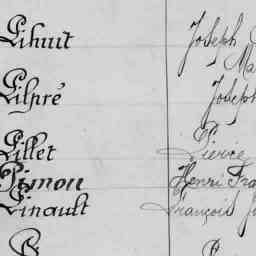 Lihuit Joseph
Ma
Lilpré Joseph
Lillet Pierre
Simon Henri Fra
Linault François J